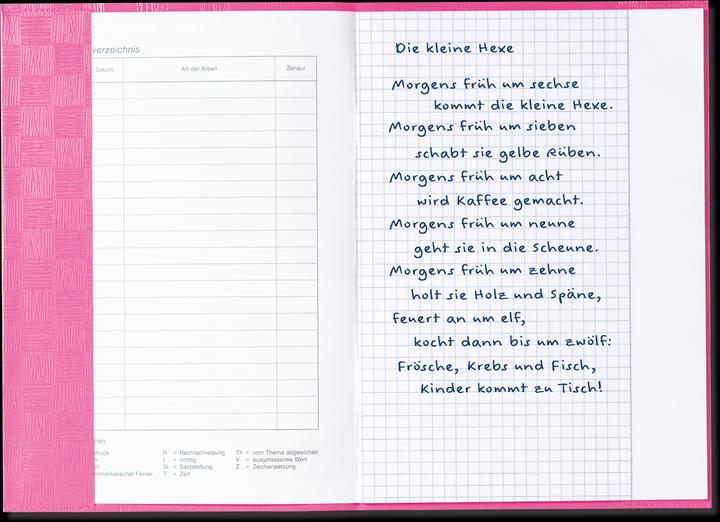 verzeichnis
Datum Art der Arbeit Zensur
R = Rechtschreibung Th = vom Thema abgewichen
r = richtig V = ausgelassenes Wort
St = Satzstellung Z = Zeichensetzung
T = Zeit
Die kleine Hexe
Morgens früh um sechse
kommt die kleine Hexe.
Morgens früh um sieben
schabt sie gelbe Rüben.
Morgens früh um acht
wird Kaffee gemacht.
Morgens früh um neune
geht sie in die Scheune.
Morgens früh um zehne
holt sie Holz und Späne,
feuert an um elf,
kocht dann bis um zwölf:
Frösche, Krebs und Fisch,
Kinder kommt zu Tisch!